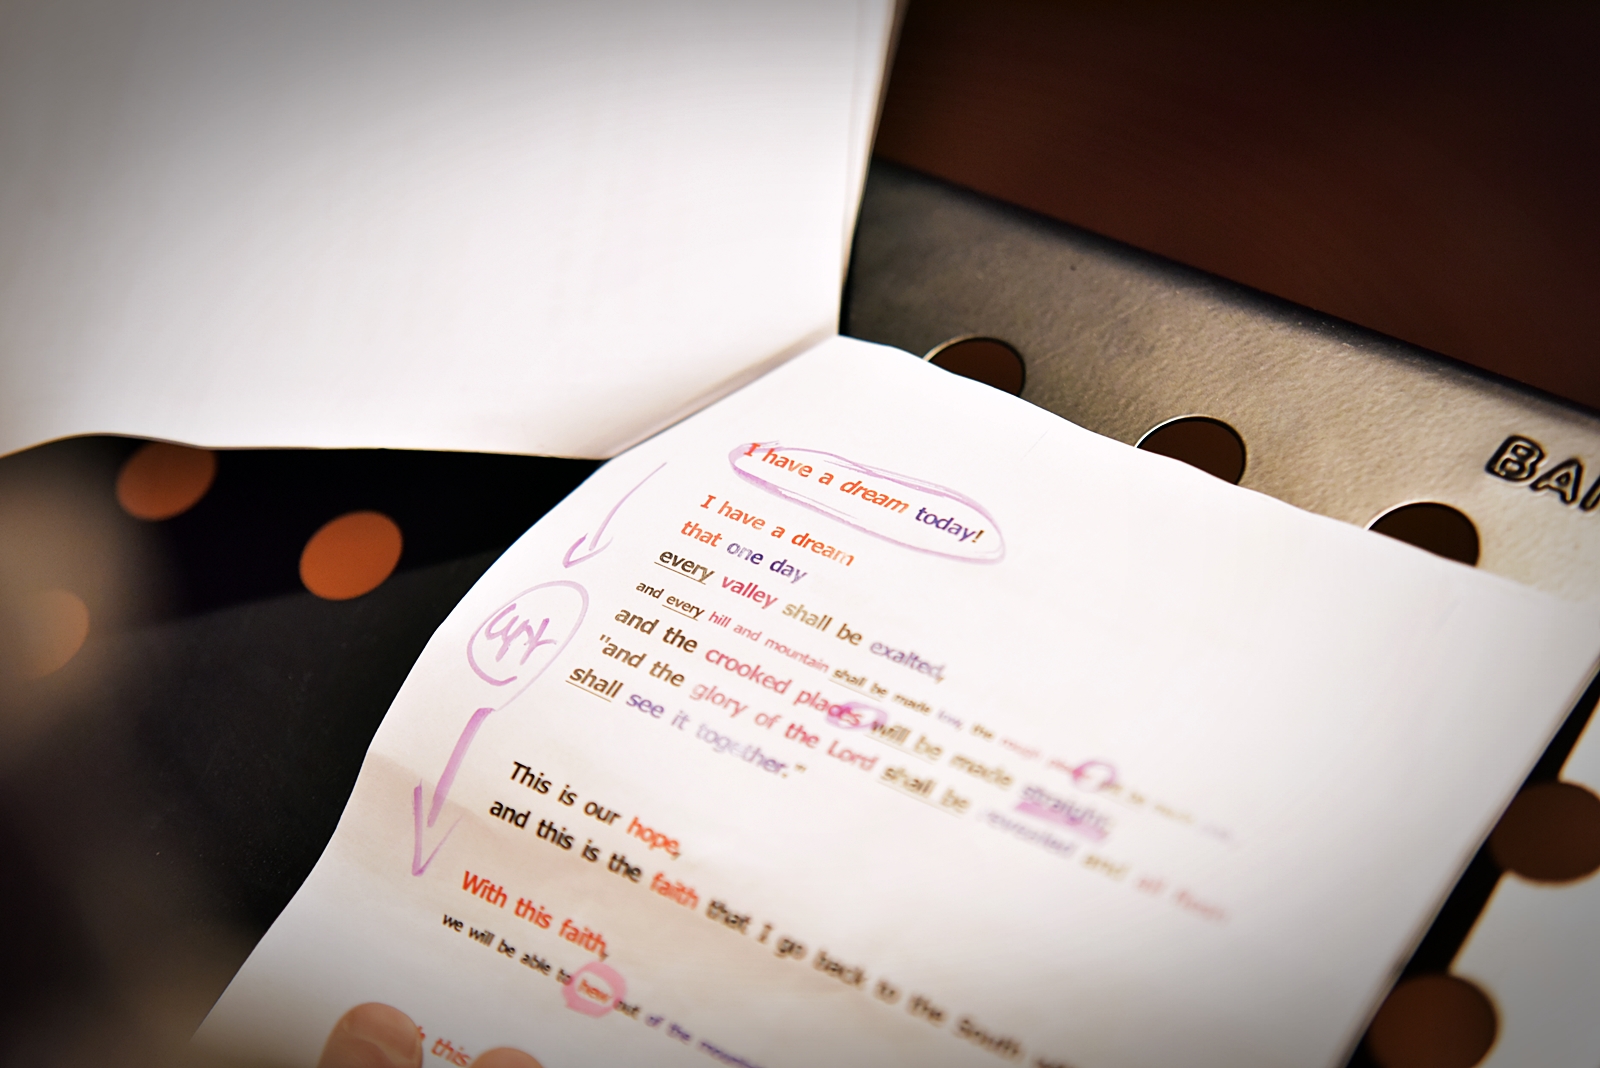 BAI
I have a dream today!
I have a dream
that one day
every valley shall be exalted,
and every hill and mountain shall be made low, the rough
and the crooked places will be made straight,
"and the glory of the Lord shall be revealed and all flesh
shall see it together."
This is our hope,
and this is the faith that I go back to the South
With this faith,
we will be able to hew out of the
this